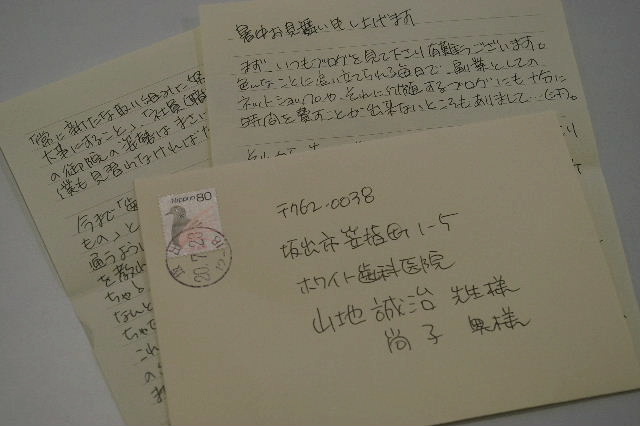 暑中お見舞い申し上げます
まず、いつもブログを見て下さり有難うございます。
色んなことに追い立てられる毎日で、副業としての
ネットショップや、それに付随するブログにも十分に
時間を費すことが出来ないところもありまして…(汗)。
「常に新たな取り組みに
大事にすること」、「社員
の御院の姿勢はまさに
僕も見習わなければ
今まで「歯
もの。」と
通うように
を教
ちゃ
なんと
ちゃ
これ
の
NIPPON 80
坂出
20.7.23
12-18
〒762-0038
坂出市笠指町1-5
ホワイト歯科医院
山地 誠治 先生様
尚子 奥様